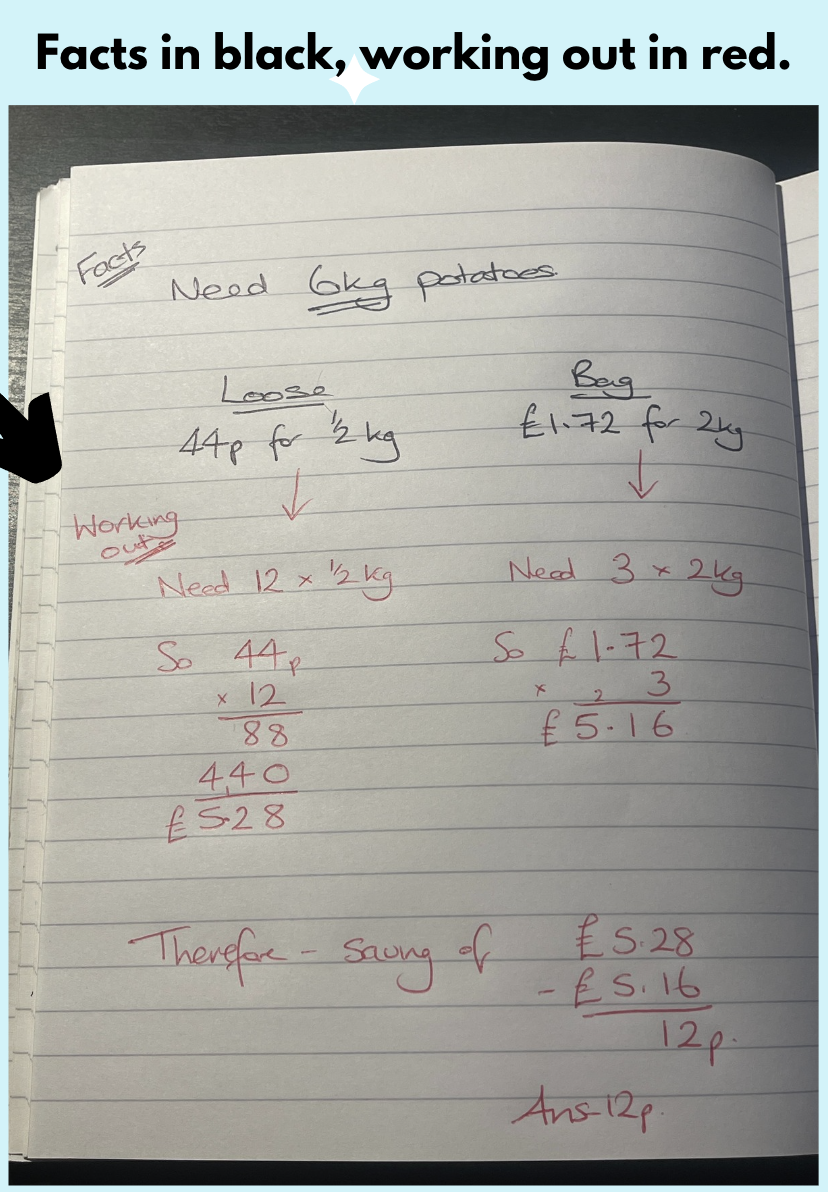 Facts in black, working out in red.
Facts
Need 6kg potatoes
Loose
44p for ½ kg
Bag
£1.72 for 2kg
Working
out
Need 12 × ½ kg
So 44p
× 12
88
440
£5.28
Need 3 × 2kg
So £1.72
× 2 3
£5.16
Therefore - saving of £5.28
- £5.16
12p.
Ans-12p.